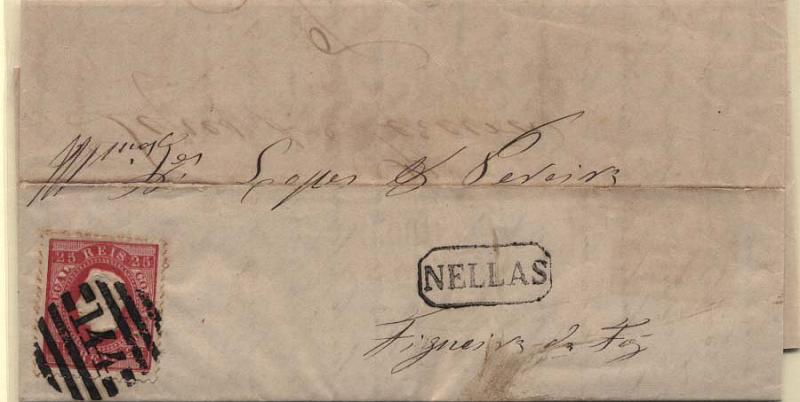 Illmos Srs Lopes & Pereira
25 REIS 25
144
NELLAS
Figueira da Foz